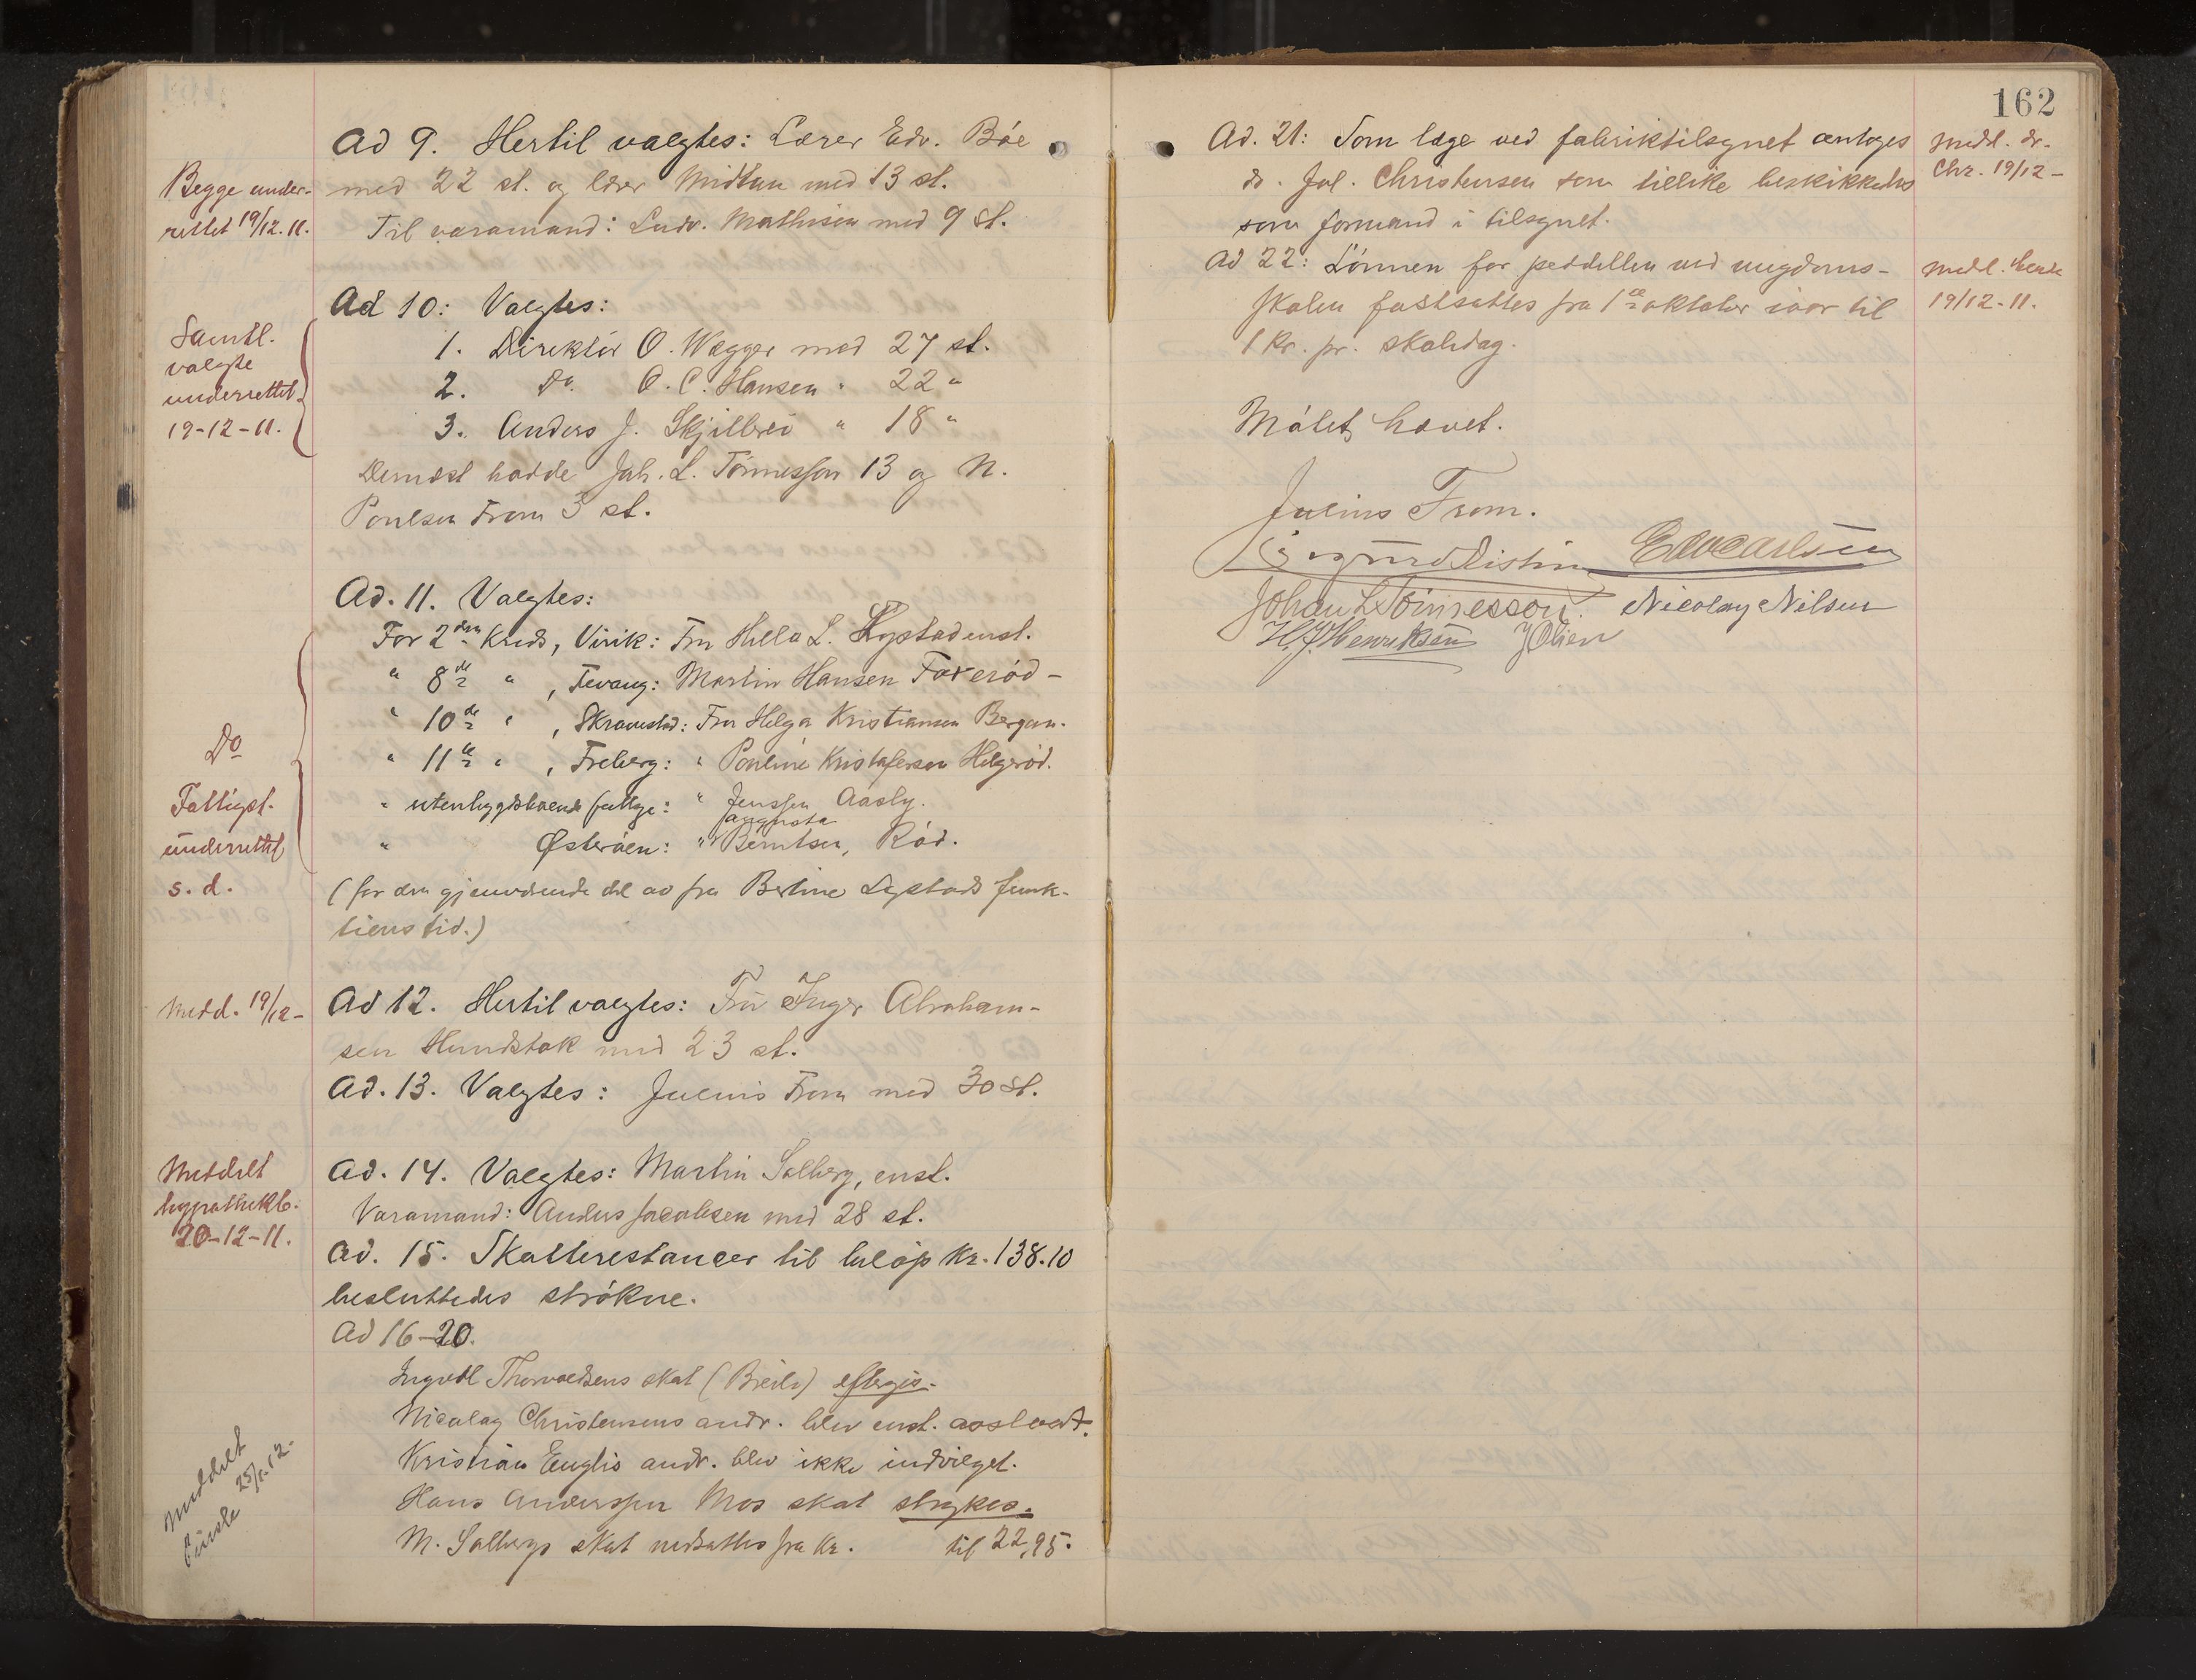 Ad 9. Hertil valgtes: Lærer Edv. Bøe
med 22 st. og lærer Midttun med 13 st.
Til varamand: Ludv. Mathisen med 9 st.
Begge under-
rettet 19/12.11.
Ad 10: Valgtes:
1. Direktör O. Wegger med 27 st.
2. Do. O. C. Hansen " 22 "
3. Anders J. Skjilbrei " 18 "
Dernæst hadde Joh. L. Tönnesson 13 og N.
Poulsen From 3 st.
Samtl.
valgte
underrettet
19-12-11.
Ad. 11. Valgtes:
For 2den Kreds, Virik: Fru L. enst.
" 8de " , Fevang: Martin Hansen Foxeröd -
" 10de " , Skravestad: Fru Helga Kristiansen Bergan.
" 11te " , Freberg: " Pouline Kristofersen Helgeröd.
" utenbygdsboende fattige: " Jenssen Aasly.
Augusta
" Østeröen: " Berntsen, Röd.
(for den gjenværende del av fru Bertine Lystads funk-
tionstid.)
Do
Fattigst.
underrettet
s. d.
Medd. 19/12-
Ad 12. Hertil valgtes: Fru Inger Abraham-
sen Hundstok med 23 st.
Ad. 13. Valgtes: Julius From med 30 st.
Meddelt
hypothekb.
20-12-11.
Ad. 14. Valgtes: Martin Solberg, enst.
Varamand: Anders Jacobsen med 28 st.
Ad. 15. Skatterestancer til belöp kr. 138.10
besluttedes strökne.
Ad 16-20.
Ingvald Thorvaldsens skat (Breili) eftergis.
Nicolay Christensens andr. blev enst. avslaat.
Kristian Englis andr. blev ikke indvilget.
Hans Anderssen Mos skat strykes.
M. Solbergs skat nedsattes fra kr. til 22,95.
Meddelt
25/1.12.
162
Ad. 21: Som læge ved fabriktilsynet antoges
dr. Jul. Christensen som tillike beskikkedes
som formand i tilsynet.
Medd. dr.
Chr. 19/12-
Ad 22: Lönnen for pedellen ved ungdoms-
skolen fastsattes fra 1ste oktober iaar til
1 Kr. pr. skoledag.
Medd.
19/12-11.
Mötet hævet.
Julius From.
Johan L Tönnesson. Nicolay Nilsen
H. J. Henriksen J Olsen